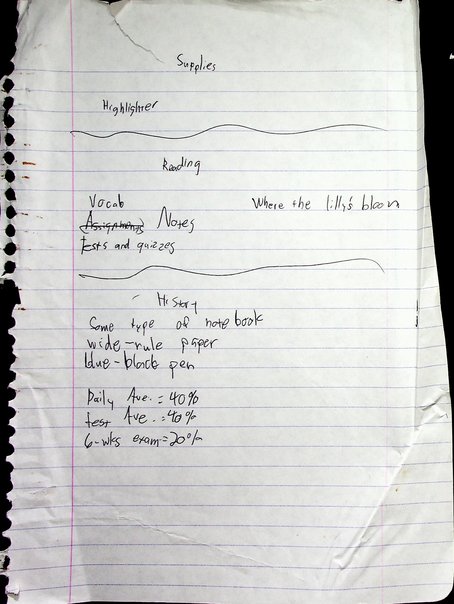 Supplies
Highlighter
Reading
Vocab
Where the lilly's bloom
Assignments Notes
tests and quizzes
History
Some type of notebook
wide-rule paper
blue-black pen
Daily Ave. = 40%
test Ave. = 40%
6-wks exam = 20%